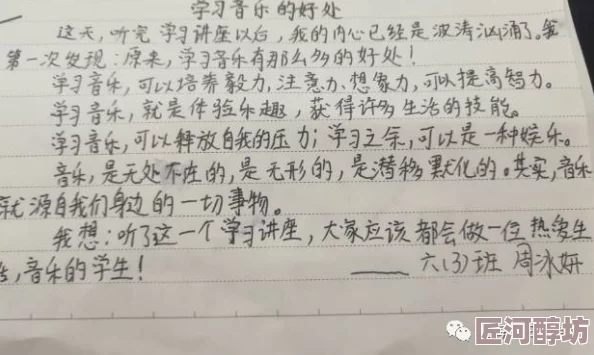 学习音乐的好处
这天,听完学习讲座以后,我的内心已经是波涛汹涌了。我
第一次发现:原来,学习音乐有那么多的好处!
学习音乐,可以培养毅力,注意力、想象力,可以提高智力。
学习音乐,就是体验乐趣,获得许多生活的技能。
学习音乐,可以释放自我的压力;学习之余,可以是一种娱乐。
音乐,是无处不在的,是无形的,是潜移默化的。其实,音乐
就源自我们身边的一切事物。
我想:听了这一个学习讲座,大家应该都会做一位热爱生
活,音乐的学生!
——六(3)班 周冰妍
匠河醇坊